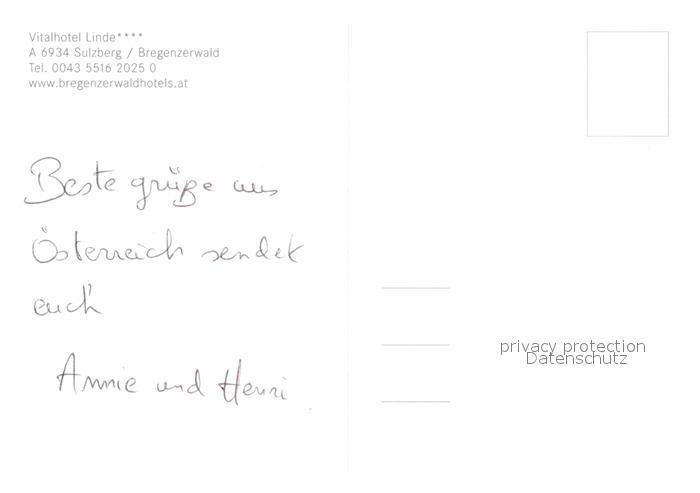 Vitalhotel Linde****
A 6934 Sulzberg / Bregenzerwald
Tel. 0043 5516 2025 0
www.bregenzerwaldhotels.at
Beste grüße aus
Österreich sendet
euch
Annie und Henri
privacy protection
Datenschutz